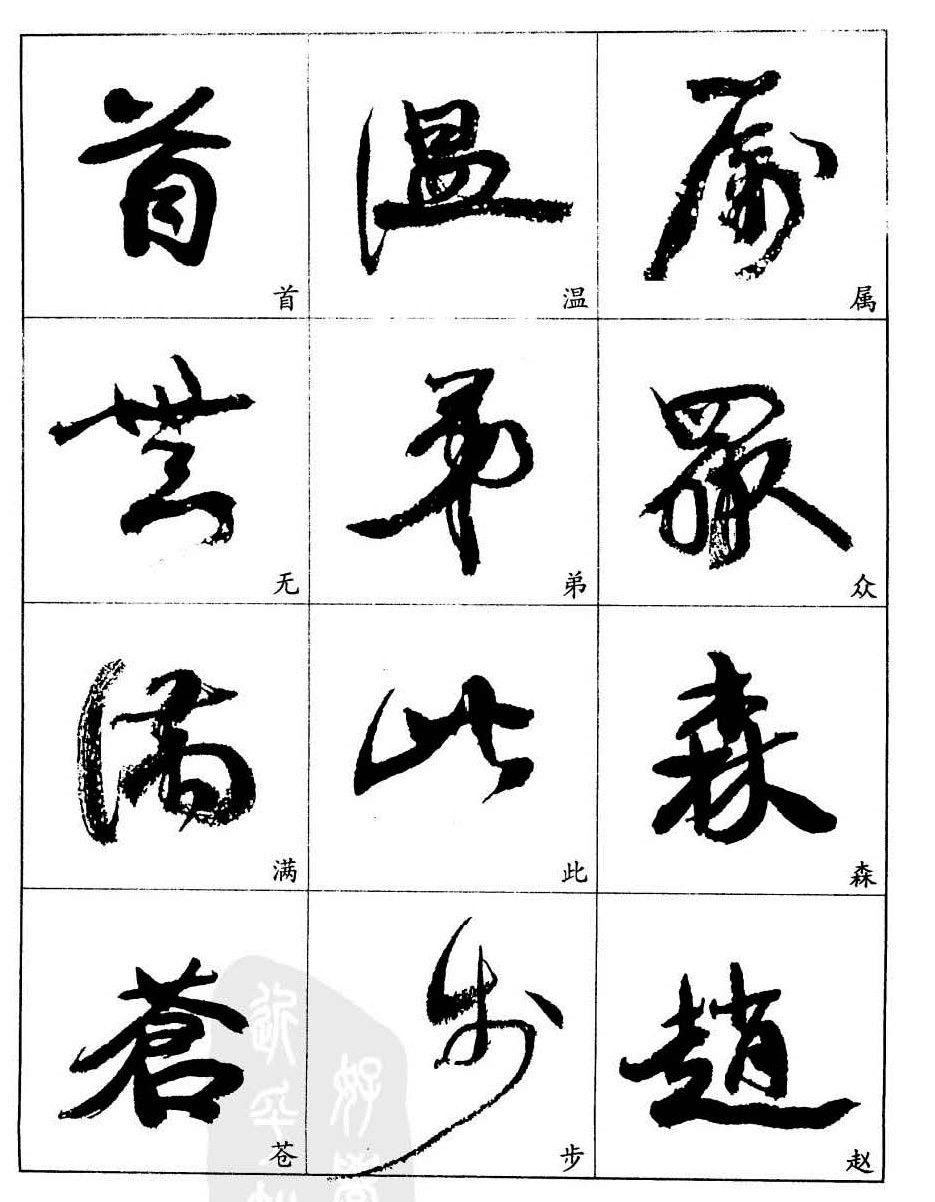 首 温 属
首 温 属
無 弟 眾
无 弟 众
滿 此 森
满 此 森
蒼 步 趙
苍 步 赵